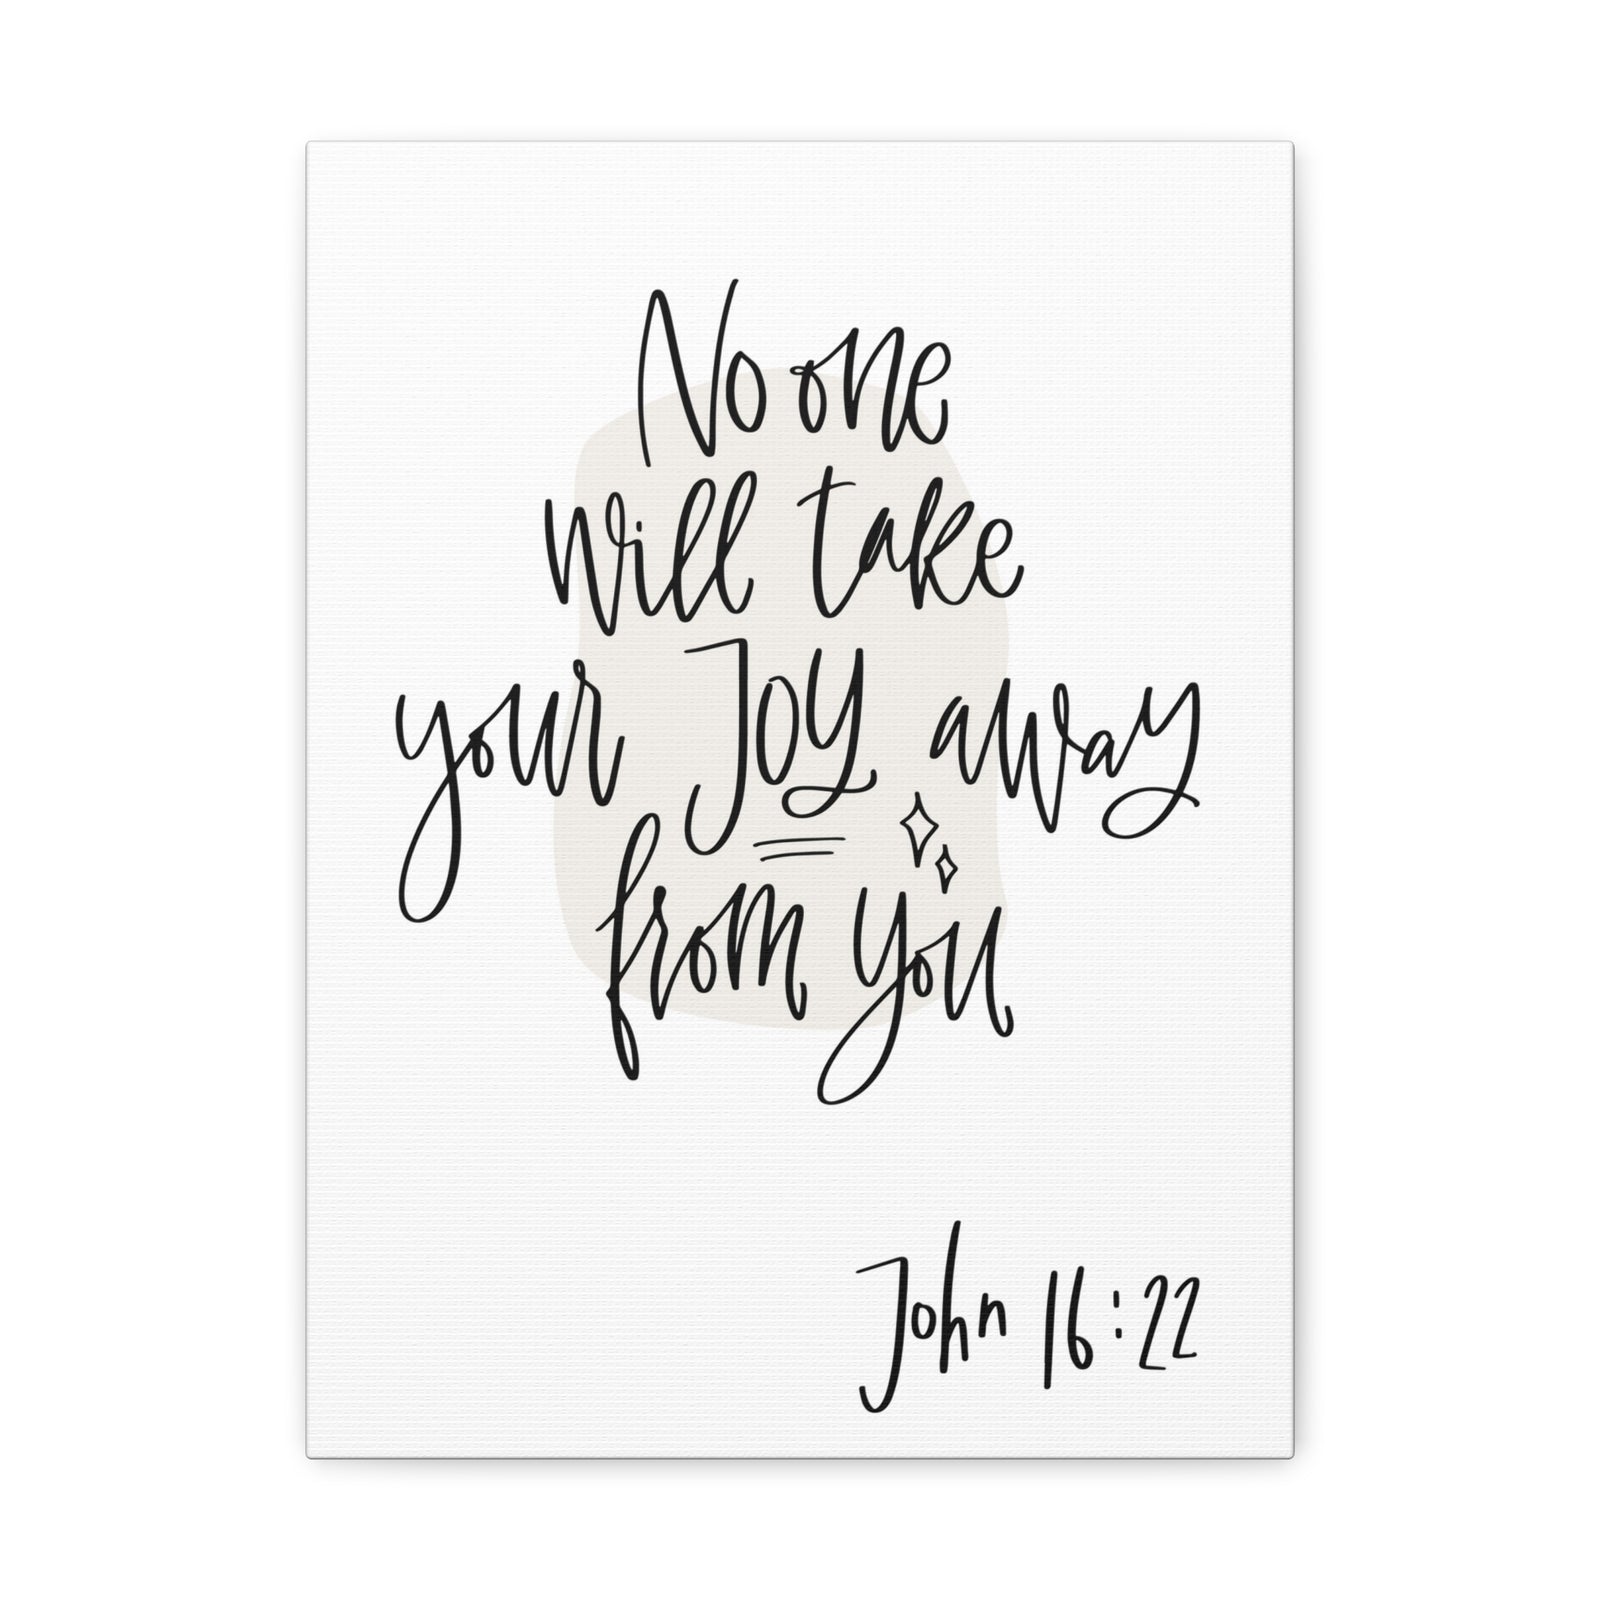 No one
will take
your Joy away
from you
John 16:22